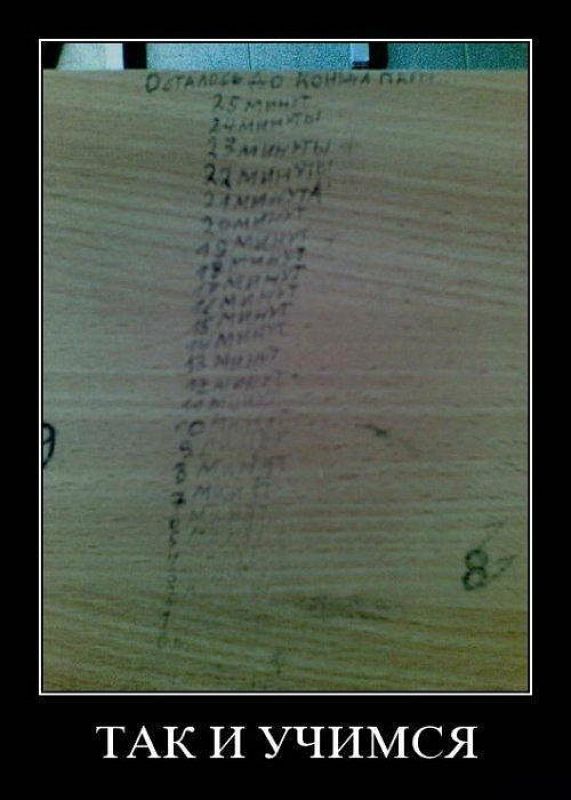 Осталось до конца пары
25 минут
24 минуты
23 минуты
22 минуты
21 минута
20 минут
19 минут
18 минут
17 минут
16 минут
15 минут
14 минут
13 минут
12 минут
11 минут
10 минут
9 минут
8 минут
7 минут
8
ТАК И УЧИМСЯ